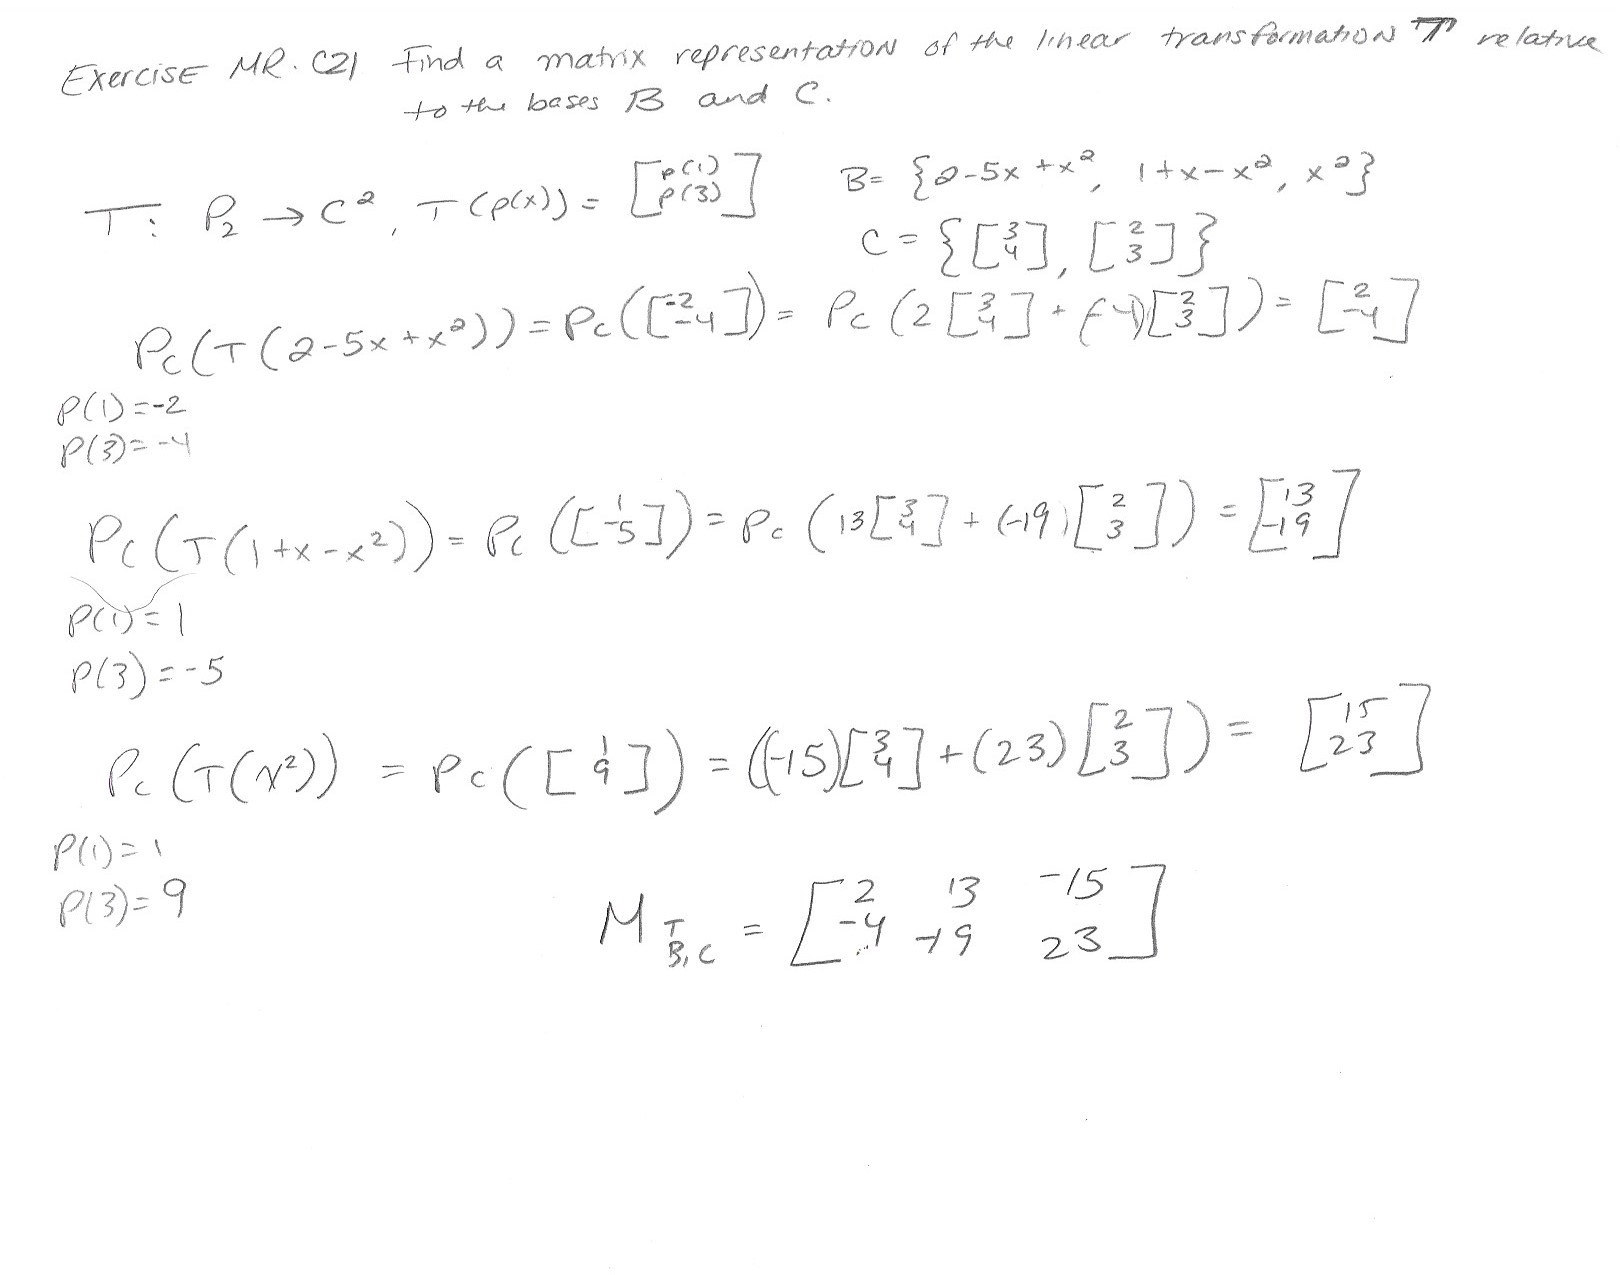 Exercise MR. C21 Find a matrix representation of the linear transformation T relative
to the bases B and C.
T: P₂ → C², T(p(x)) = [p(1) p(3)] B = {2-5x+x², 1+x-x², x²}
C = {[3 4], [2 3]}
Pc(T(2-5x+x²)) = Pc([-2 -4]) = Pc(2[3 4] + (-4)[2 3]) = [2 -4]
P(1) = -2
P(3) = -4
Pc(T(1+x-x²)) = Pc([1 -5]) = Pc(13[3 4] + (-19)[2 3]) = [13 -19]
P(1) = 1
P(3) = -5
Pc(T(x²)) = Pc([1 9]) = ((-15)[3 4] + (23)[2 3]) = [15 23]
P(1) = 1
P(3) = 9
M T B,C = [2 13 -15
-4 -19 23]